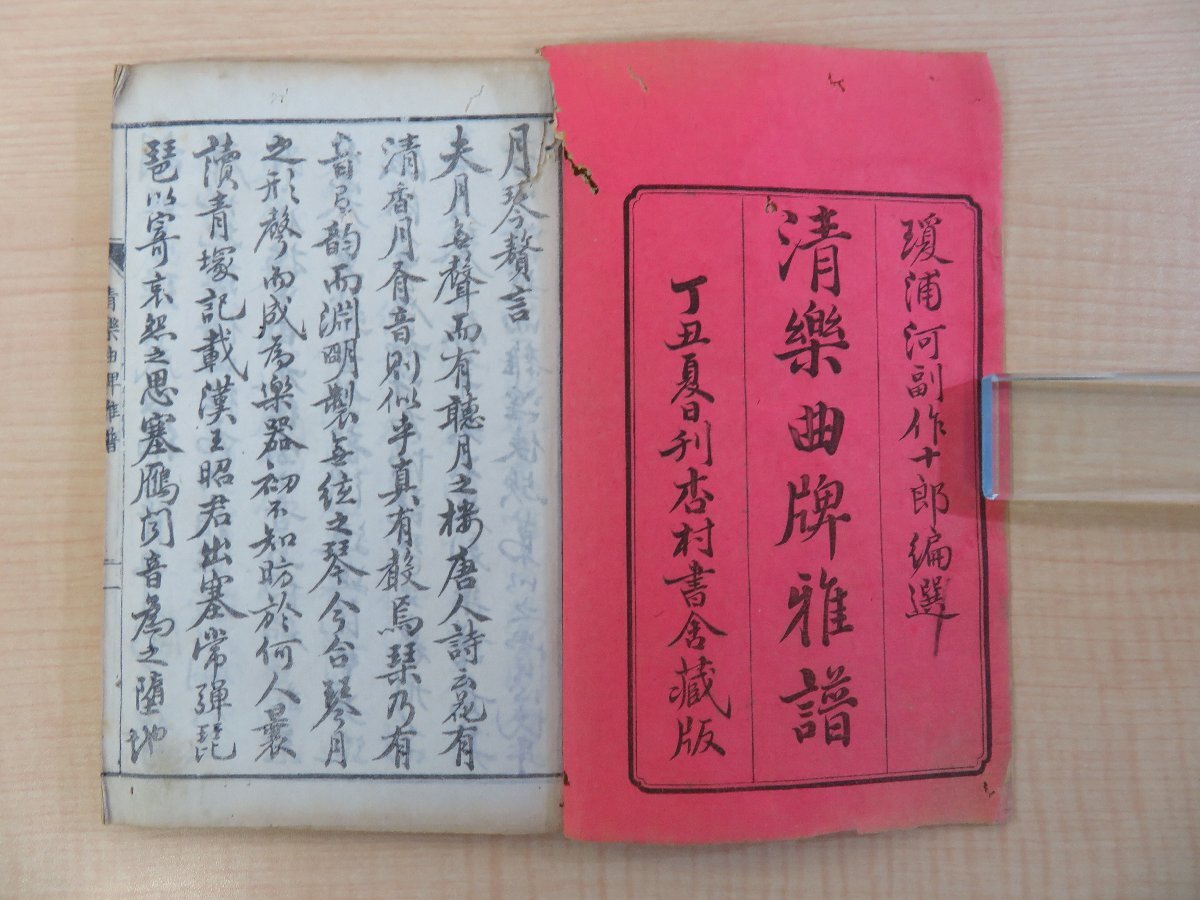 瓊浦河副作十郎編選
清樂曲牌雅譜
丁丑夏日刊杏村書舍藏版
月琴贅言
夫月無聲而有聽月之樓唐人詩云花有
清香月有音則似乎真有聲焉琴乃有
音有韵而淵明製無絃之琴今合琴月
之形聲而成為樂器初不知昉於何人曩
讀青塚記載漢王昭君出塞常彈琵
琶以寄哀怨之思塞鴈聞音為之墮地
清樂曲牌雅譜